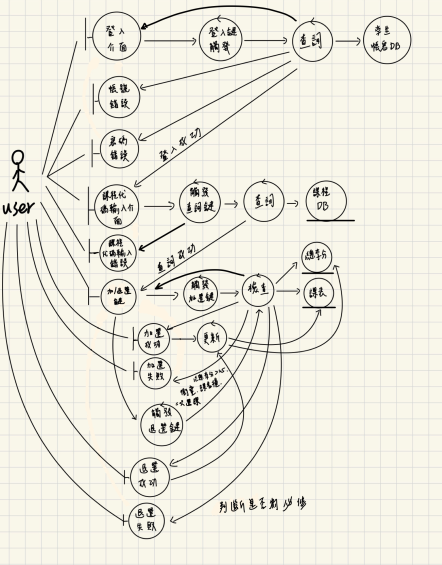 登入
介面
登入鍵
觸發
查詢
學生
帳密DB
帳號
錯誤
密碼
錯誤
登入成功
user
課程代
碼輸入介
面
觸發
查詢鍵
查詢
課程
DB
課程
代碼輸入
錯誤
查詢成功
加/退選
鍵
觸發
加選鍵
檢查
總學分
課表
加選
成功
更新
加選
失敗
觸發
退選鍵
退選
成功
退選
失敗
判斷是否為必修